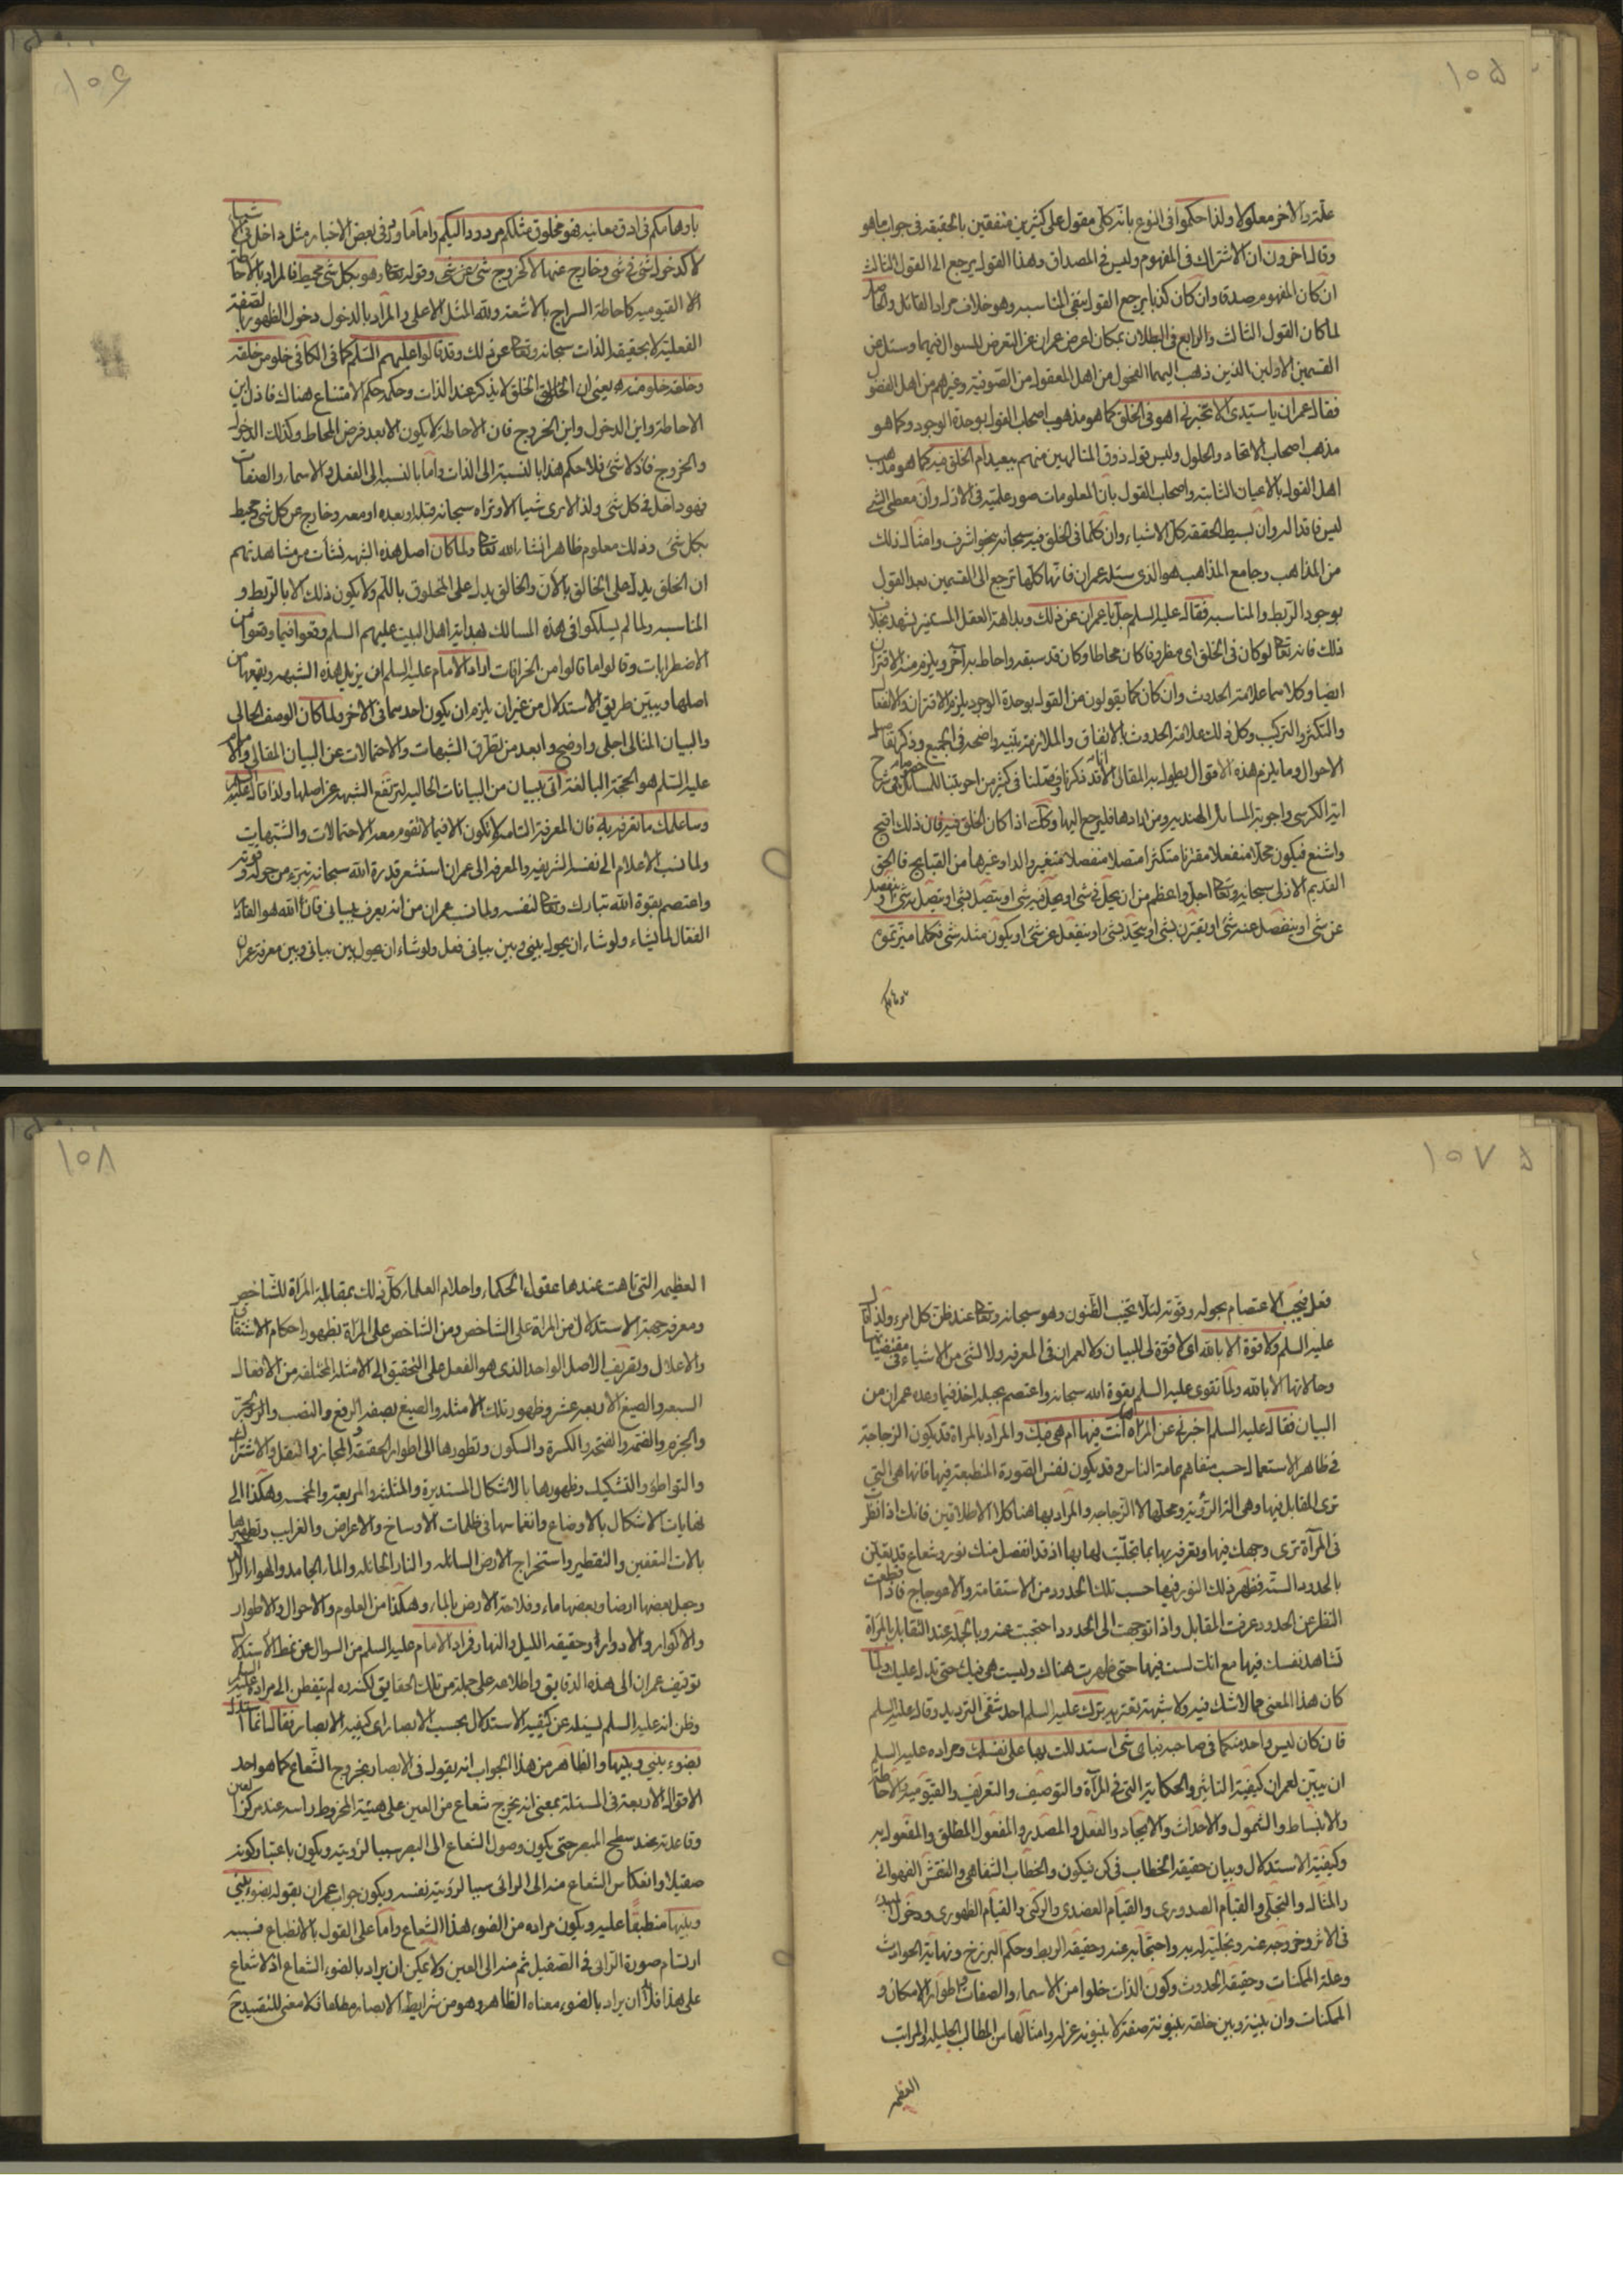 ١٠٥
علة والاخر معلولا ولذا حكموا فى النوع بانه كلى مقول على كثيرين متفقين بالحقيقة فى جواب ماهو
وقال اخرون ان الاشتراك فى المفهوم وليس فى المصداق وهذا القول يرجع الى القول الثالث
ان كان المفهوم صدقا وان كان كذبا يرجع القول بنفى المناسبه وهو خلاف مراد القائل والحاصل
لما كان القول الثالث والرابع فى البطلان بمكان اعرض عمران عن التعرض للسوال فيهما وسئل عن
القسمين الاولين الذين ذهب اليهما الفحول من اهل المعقول من الصوفية وغيرهم من اهل الفضول
فقال عمران يا سيدى الا تخبرنى اهو فى الخلق كما هو مذهب اصحاب القول بوحدة الوجود وكما هو
مذهب اصحاب الاتحاد والحلول وليس قول ذوق المتالهين منهم ببعيد ام الخلق فيه كما هو مذهب
اهل القول بالاعيان الثابته واصحاب القول بان المعلومات صور علمية فى الازل وان معطى الشئ
ليس فاقدا له وان بسيط الحقيقه كل الاشياء وان كلما فى الخلق فيه سبحانه بنحو اشرف وامثال ذلك
من المذاهب وجامع المذاهب هو الذى سئله عمران فانها كلها ترجع الى القسمين بعد القول
بوجود الربط والمناسبه فقال عليه السلم جل يا عمران عن ذلك وبداهة العقل المستنير يشهد بخلاف
ذلك فانه تعالى لو كان فى الخلق اى مظروفا كان محاطا وكان قد سبقه واحاط به آخر ويلزم منه الاقتران
ايضا وكلاهما علامة الحدوث وان كان كما يقولون من القول بوحدة الوجود يلزم الاقتران والانفعال
والتكثر والتركيب وكل ذلك علامة الحدوث بالاتفاق والملازمة بينه واضحه فى الجميع وذكر تفاصيل
الاحوال وما يلزم هذه الاقوال يطول به المقال الا انا قد ذكرنا وفصلنا فى كثير من اجوبتنا للمسائل خصوصا فى شرح
اية الكرسى واجوبة المسائل الهنديه ومن ارادها فليرجع اليها وكذا اذا كان الخلق فيه فان ذلك اقبح
واشنع فيكون محلا منفعلا مقترنا متكثرا متصلا منفصلا متغيرا والدا وغيرها من القبايح فالحق
القديم الازلى سبحانه وتعالى اجل واعظم من ان يحل فى شئ او يحل فيه شئ او يتصل بشئ او يتصل به شئ او ينفصل
عن شئ او ينفصل عنه شئ او يقترن بشئ او يتحد بشئ او ينفعل عن شئ او يكون مثله شئ فكلما ميزتموه
باوهامكم
١٠۶
باوهامكم فى ادق معانيه فهو مخلوق مثلكم مردود اليكم واما ما ورد فى بعض الاخبار مثل داخل فى الاشياء
لا كدخول شئ فى شئ وخارج عنها لا كخروج شئ عن شئ وقوله تعالى وهو بكل شئ محيط فالمراد بالاحاطة
الا القيوميه كاحاطة السراج بالاشعة ولله المثل الاعلى والمراد بالدخول دخول الظهور بالصفة
الفعلية لا بحقيقة الذات سبحانه وتعالى عن ذلك وقد قالوا عليهم السلم كما فى الكافى خلو من خلقه
وخلقه خلو منه يعنى ان الخالق الخلق لا يذكر عند الذات وحكمه حكم الامتناع هناك فاذن اين
الاحاطة واين الدخول واين الخروج فان الاحاطة لا يكون الا بعد فرض المحاط وكذلك الدخول
والخروج فاذ لا شئ فلا حكم هذا بالنسبة الى الذات واما بالنسبه الى الفعل والاسماء والصفات
فهو داخل فى كل شئ ولذا لا يرى شيئا الا وتراه سبحانه قبله او بعده او معه وخارج عن كل شئ محيط
بكل شئ وذلك معلوم ظاهر انشاء الله تعالى ولما كان اصل هذه الشبهه نشات من مشاهدتهم
ان الخلق يدل على الخالق بالان والخالق يدل على المخلوق باللم ولا يكون ذلك الا بالربط و
المناسبه ولما لم يسلكوا فى هذه المسالك بهداية اهل البيت عليهم السلم وقعوا فيما وقعوا من
الاضطرابات وقالوا ما قالوا من الخرافات اراد الامام عليه السلم ان يزيل هذه الشبهه ويقلعها من
اصلها ويبين طريق الاستدلال من غير ان يلزم ان يكون احدهما فى الاخر ولما كان الوصف الحالى
والبيان المثالى اجلى واوضح وابعد من تطرق الشبهات والاحتمالات عن البيان المقالى والامام
عليه السلم هو الحجة البالغة اتى ببيان من البيانات الحاليه لترتفع الشبهه عن اصلها ولذا قال عليه السلم
وساعلمك ما تعرفه به فان المعرفة التامه لا تكون الا فيما لا تقوم معه الاحتمالات والشبهات
ولما نسب الاعلام الى نفسه الشريفه والمعرفه الى عمران استشعر قدرة الله سبحانه تبرء من حوله وقوته
واعتصم بقوة الله تبارك وتعالى لنفسه ولما نسب عمران من انه يعرف ببيانى فان الله هو القادر
الفعال لما يشاء ولو شاء ان يحول بينى وبين بيانى فعل ولو شاء ان يحول بين بيانى وبين معرفة عمران
١٠٧
فعل فيجب الاعتصام بحوله وقوته لئلا يخيب الظنون وهو سبحانه وتعالى عند ظن كل امرء ولذا قال
عليه السلم ولا قوة الا بالله اى لا قوة لى للبيان ولا لعمران فى المعرفه ولا لشئ من الاشياء فى مقتضياتها
وحالاتها الا بالله ولما تقوى عليه السلم بقوة الله سبحانه واعتصم بحبله اخذ فيما وعد عمران من
البيان فقال عليه السلم اخبرنى عن المراة انت فيها ام هى فيك والمراد بالمراة قد يكون الزجاجة
فى ظاهر الاستعمال حسب متفاهم عامة الناس وقد يكون نفس الصورة المنطبعة فيها فانها هى التى
ترى المقابل فيها وهى الة الرؤية ومحلها الزجاجه والمراد بها هنا كلا الاطلاقين فانك اذا نظرت
فى المرآة ترى وجهك فيها وتعرفه بها بما تجليت لها بها اذ قد انفصل منك نور وشعاع قد يعلق
بالحدود الستة فظهر ذلك النور فيها حسب تلك الحدود من الاستقامة والاعوجاج فاذا قطعت
النظر عن الحدود عرفت المقابل واذا توجهت الى الحدود احتجبت عنه وبالجملة عند التقابل بالمراة
تشاهد نفسك فيها مع انك لست فيها حتى ظهرت هناك وليست هى فيك حتى تدل عليك ولما
كان هذا المعنى مما لا شك فيه ولا شبهة تعتريه ترك عليه السلم احد شقى الترديد وقال عليه السلم
فان كان ليس واحد منكما فى صاحبه فباى شئ استدللت بها على نفسك ومراده عليه السلم
ان يبين لعمران كيفية التاثير والحكاية التى فى المرآة والتوصيف والتعريف والقيومية والاحاطة
والانبساط والشمول والاحداث والايجاد والفعل والمصدر والمفعول المطلق والمفعول به
وكيفية الاستدلال وبيان حقيقة الخطاب فى كن فيكون والخطاب الشفاهى والنقش الفهوانى
والمثال والتجلى والقيام الصدورى والقيام العضدى والركنى والقيام الظهورى ودخول المبدء
فى الاثر وخروجه عنه وتجليه له به واحتجابه عنه وحقيقة الربط وحكم البرزخ ونهاية الحوادث
وعلة الممكنات وحقيقة الحدوث وكون الذات خلوا من الاسماء والصفات واطوار الامكان و
الممكنات وان بينه وبين خلقه بينونة صفة لا بينونة عزلة وامثالها من المطالب الجليله والمراتب
العظيمه
١٠٨
العظيمه التى تاهت عندها عقول الحكماء واحلام العلماء كل ذلك بمقابلة المرآة للشاخص
ومعرفة جهة الاستدلال من المراة على الشاخص ومن الشاخص على المراة بظهور احكام الاشتقاق
والاعلال وتصريف الاصل الواحد الذى هو الفعل على التحقيق الى الامثلة المختلفه من الافعال
السبعه والصيغ الاربعه عشر وظهور تلك الامثله والصيغ بصفة الرفع والنصب والجر
والجزم والضمة والفتحة والكسرة والسكون وتطورها الى اطوار الحقيقة والمجاز والنقل والاشتراك
والتواطؤ والتشكيك وظهورها بالاشكال المستديرة والمثلثه والمربعة والمخمسه وهكذا الى
نهايات الاشكال بالاوضاع وانغماسها فى ظلمات الاوساخ والاعراض والغرايب وتطهيرها
بالات التعفين والتقطير واستخراج الارض السائله والنار الحائله والماء الجامد والهواء الراكد
وجعل بعضها ارضا وبعضها ماء وفلاحة الارض بالماء وهكذا من العلوم والاحوال والاطوار
والاكوار والادوار وحقيقة الليل والنهار فمراد الامام عليه السلم من السوال عن نمط الاستدلال
توقيف عمران الى هذه الدقايق واطلاعه على جملة من تلك الحقايق لكنه لم يتفطن الى مراده عليه السلم
وظن انه عليه السلم يسئله عن كيفية الاستدلال بحسب الابصار اى كيفية الابصار فقال انما استدل
بضوء بينى وبينها والظاهر من هذا الجواب انه يقول فى الابصار بخروج الشعاع كما هو احد
الاقوال الاربعة فى المسئلة بمعنى انه يخرج شعاع من العين على هيئة المخروط راسه عند مركز العين
وقاعدته عند سطح المبصر حتى يكون وصول الشعاع الى المبصر سببا لرؤيته ويكون باعتبار كونه
صقيلا وانعكاس الشعاع منه الى الرائى سببا لرؤية نفسه ويكون جواب عمران بقوله بضوء بينى
وبينها منطبقا عليه ويكون مراده من الضوء هذا الشعاع واما على القول بالانطباع فسببه
ارتسام صورة الرائى فى الصقيل ثم منه الى العين ولا يمكن ان يراد بالضوء الشعاع اذ لا شعاع
على هذا فلابد ان يراد بالضوء معناه الظاهر وهو من شرايط الابصار مطلقا فلا معنى للتقييد